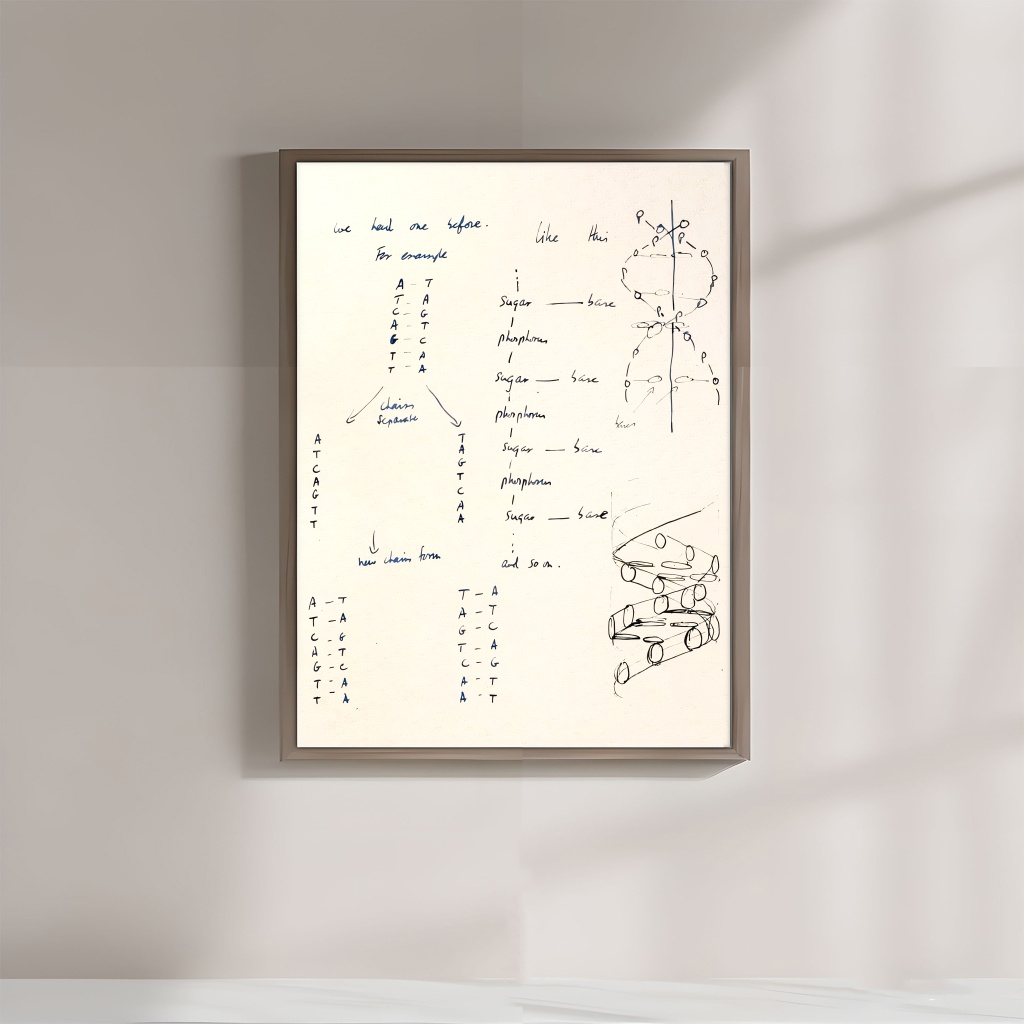 we had one before.
For example
A - T
T - A
C - G
A - T
G - C
T - A
T - A
chains
separate
A
T
C
A
G
T
T
T
A
G
T
C
A
A
new chains form
A - T
T - A
C - G
A - T
G - C
T - A
T - A
T - A
A - T
G - C
T - A
C - G
A - T
A - T
like this
sugar — base
phosphorus
sugar — base
phosphorus
sugar — base
phosphorus
sugar — base
and so on.
P
P P
P
P P
P P
bases